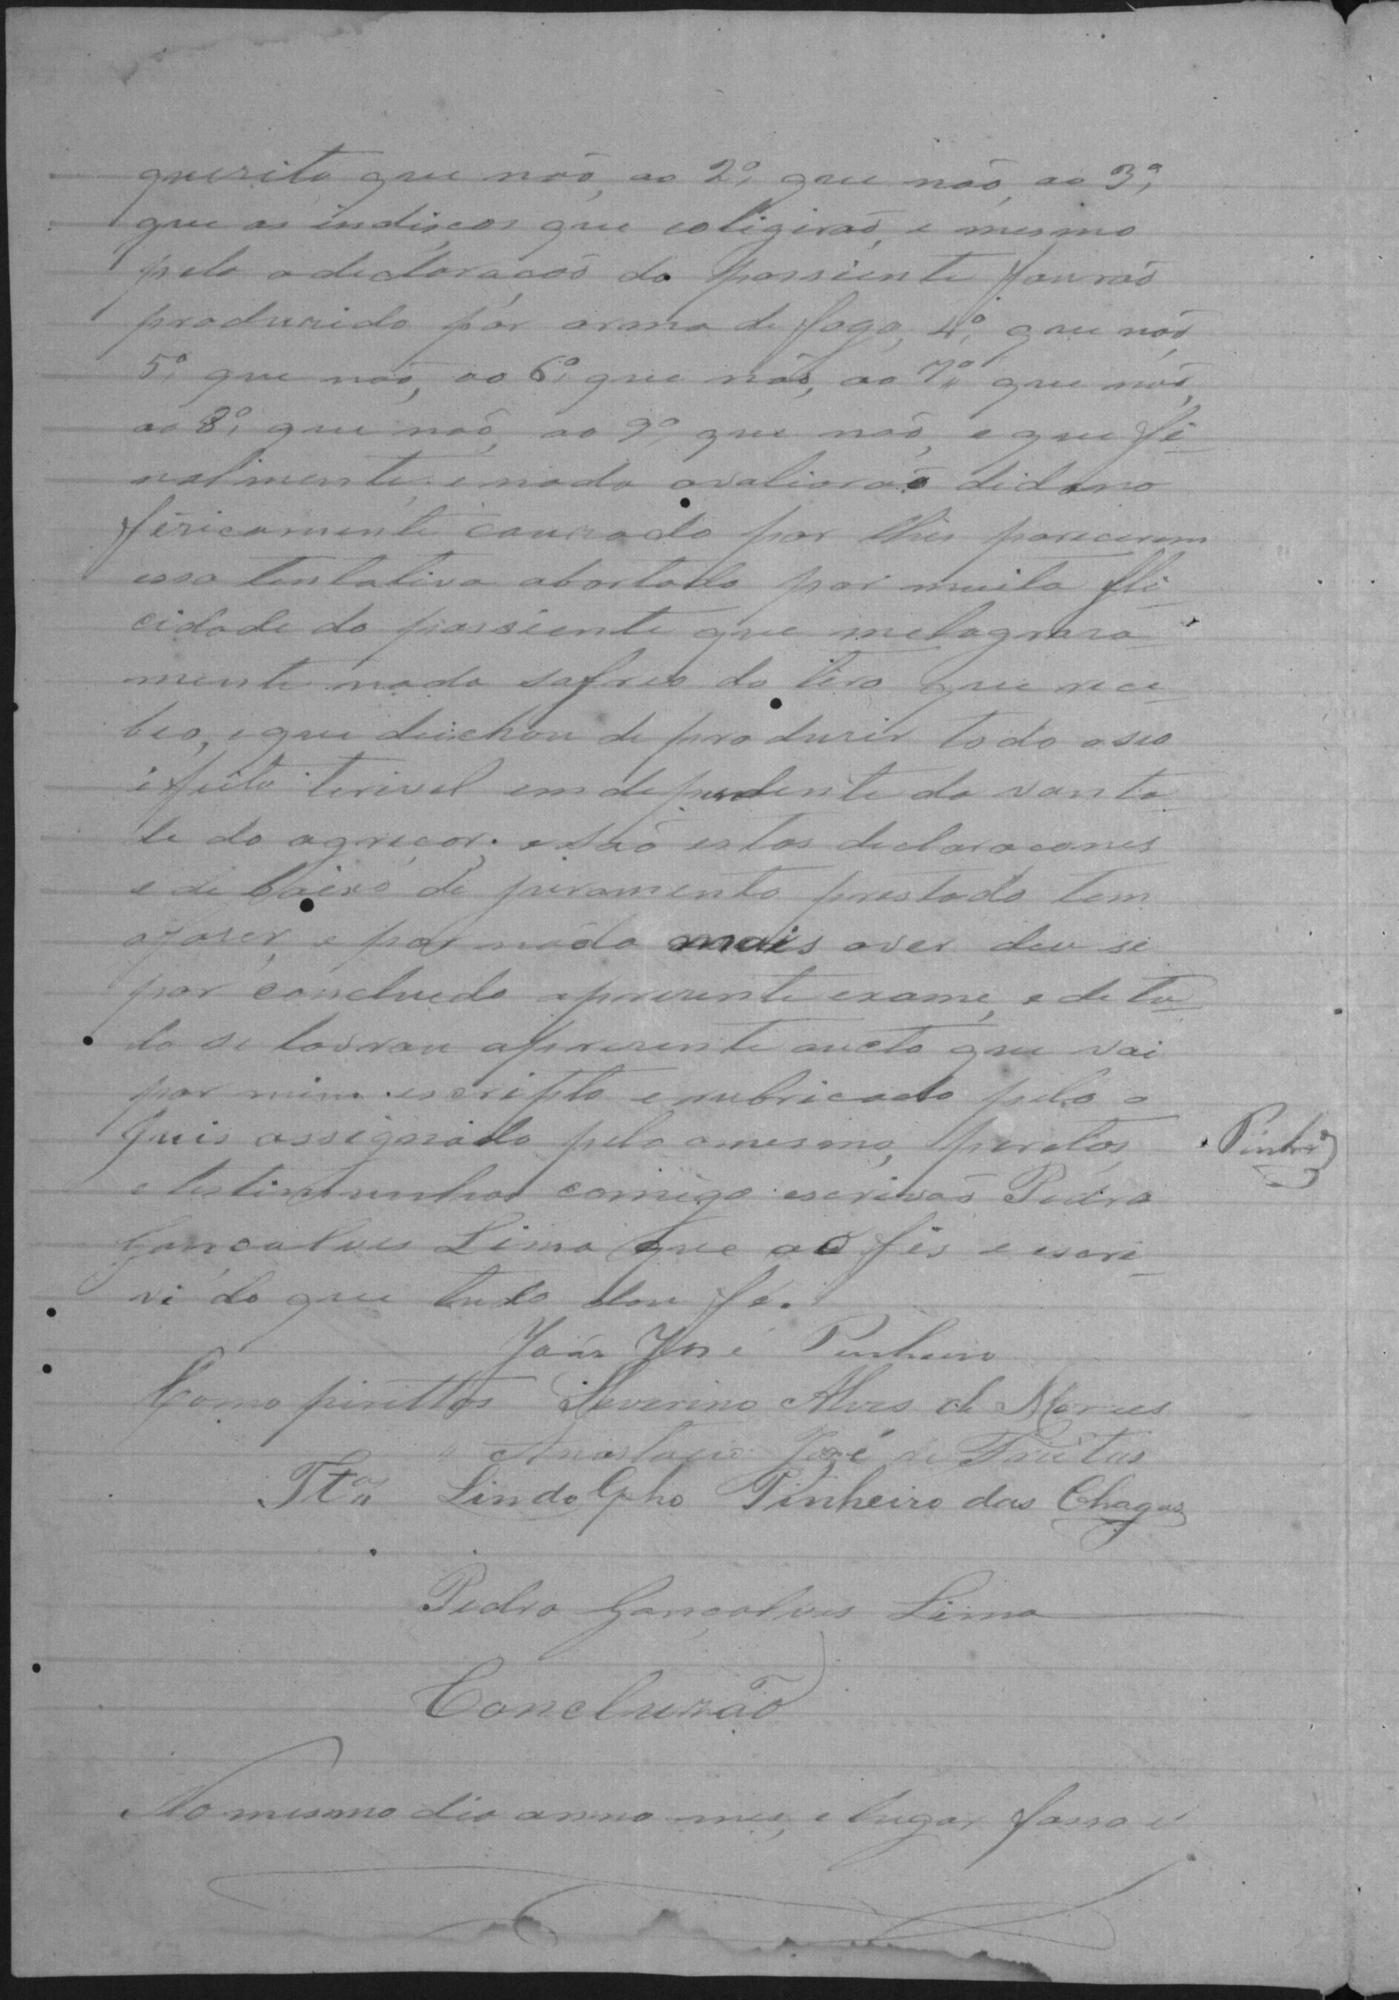 quezito que não, ao 2º, que não, ao 3º,
que os indiscos que coligirão, e mesmo
pelo a declaracaõ do passiente foi
produzido pór arma de fogo, 4º, que não
5º, que naõ, ao 6º, que não, ao 7º, que não,
ao 8º, que naõ, ao 9º, que naõ, e que fi-
nalmente, e nada avaliaraõ didano
fizicamente cauzado por lhes parecerem
essa tentativa abortada por muita fili-
cidade do passiente que melagroza-
mente nada sofreo do tiro que rece-
beo, e que deichou de produzir todo o seo
ifeito terivel emdependente da vonta-
de do agreçor; e saõ estas declaracones
e de baixo de juramento prestado tem
afazer, e por nada mais aver deu se
por concluido apresente exame, e de tu-
do se lavrou apresente aucto que vai
por mim escripto e rubricado pelo o
Juis assignado pelo o mesmo, peretos
e testimunhas comigo escrivaõ Pedro
Gonçalves Lima que o fis e escri-
vi do que tudo dou fé.
João José Pinheiro
Como perittos Severino Alves de Moraes
" Anastacio José de Freitas
Ttas Lindolpho Pinheiro das Chagas
Pedro Gonçalves Lima
Concluzão
No mesmo dia anno mes, e lugar fasso é